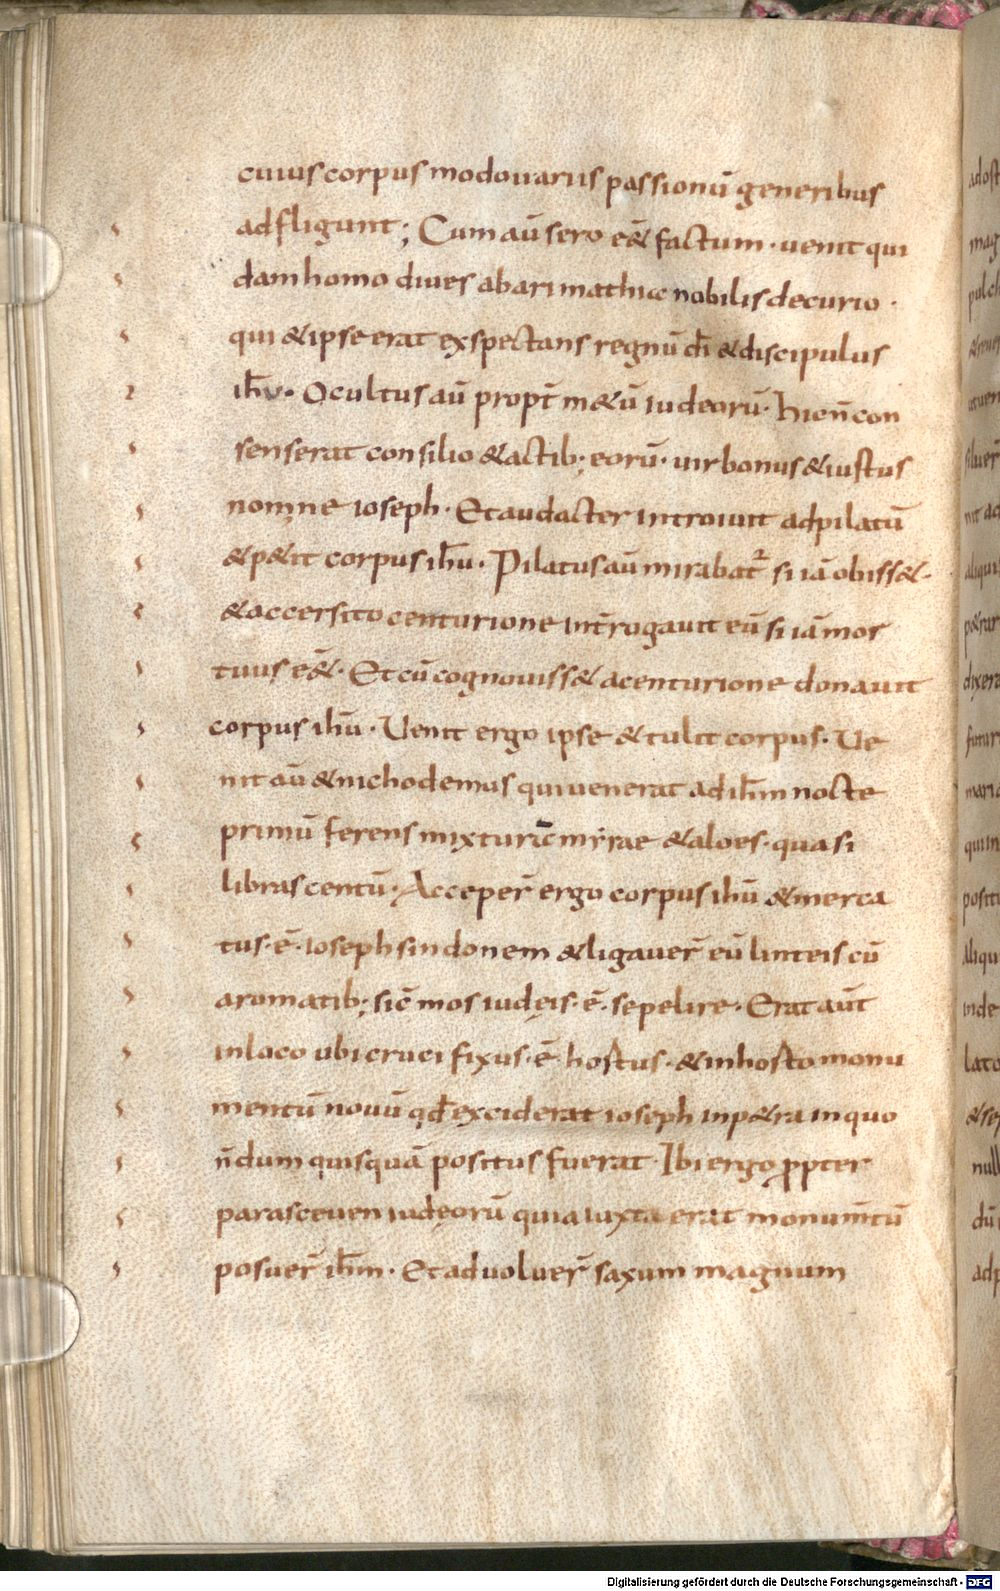 cuius corpus modo uariis passionū generibus
adfligunt; Cum aū sero eēt factum · uenit qui
dam homo diues ab arimathiae nobilis decurio ·
qui & ipse erat exspectans regnū dī & discipulus
ihū · Ocultus aū propt̄ m&ū iudeorū · hic n̄ con
senserat consilio & actib; eorū · uir bonus & iustus
nomine ioseph · Et audacter introiuit ad pilatū
& p&iit corpus ihū · Pilatus aū mirabat̄ si iā obiss& ·
& accersito centurione int̄rogauit eū si iā mor
tuus eē& · Et cū cognouiss& a centurione donauit
corpus ihū · Uenit ergo ipse & tulit corpus · Ue
nit aū & nichodemus qui uenerat ad ihm̄ nocte
primū ferens mixturā myrrae & aloes · quasi
libras centū · Acceper̄ ergo corpus ihū & merca
tus · ē · ioseph sindonem & ligauer̄ eū linteis cū
aromatib; sic̄ mos iudęis · ē · sepelire · Erat aūt
in loco ubi crucifixus · ē · hortus · & in horto monu
mentū nouū qđ exciderat ioseph in p&ra in quo
n̄dum quisquā positus fuerat · Ibi ergo propter
parasceuen iudęorū quia iuxta erat monum̄tū
posuer̄ ihm̄ · Et aduoluer̄ saxum magnum
Digitalisierung gefördert durch die Deutsche Forschungsgemeinschaft - DFG